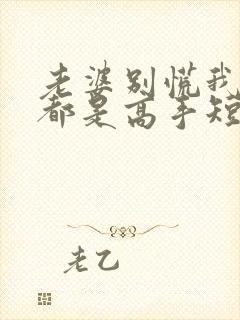 老婆别慌我
都是高手短
老乙